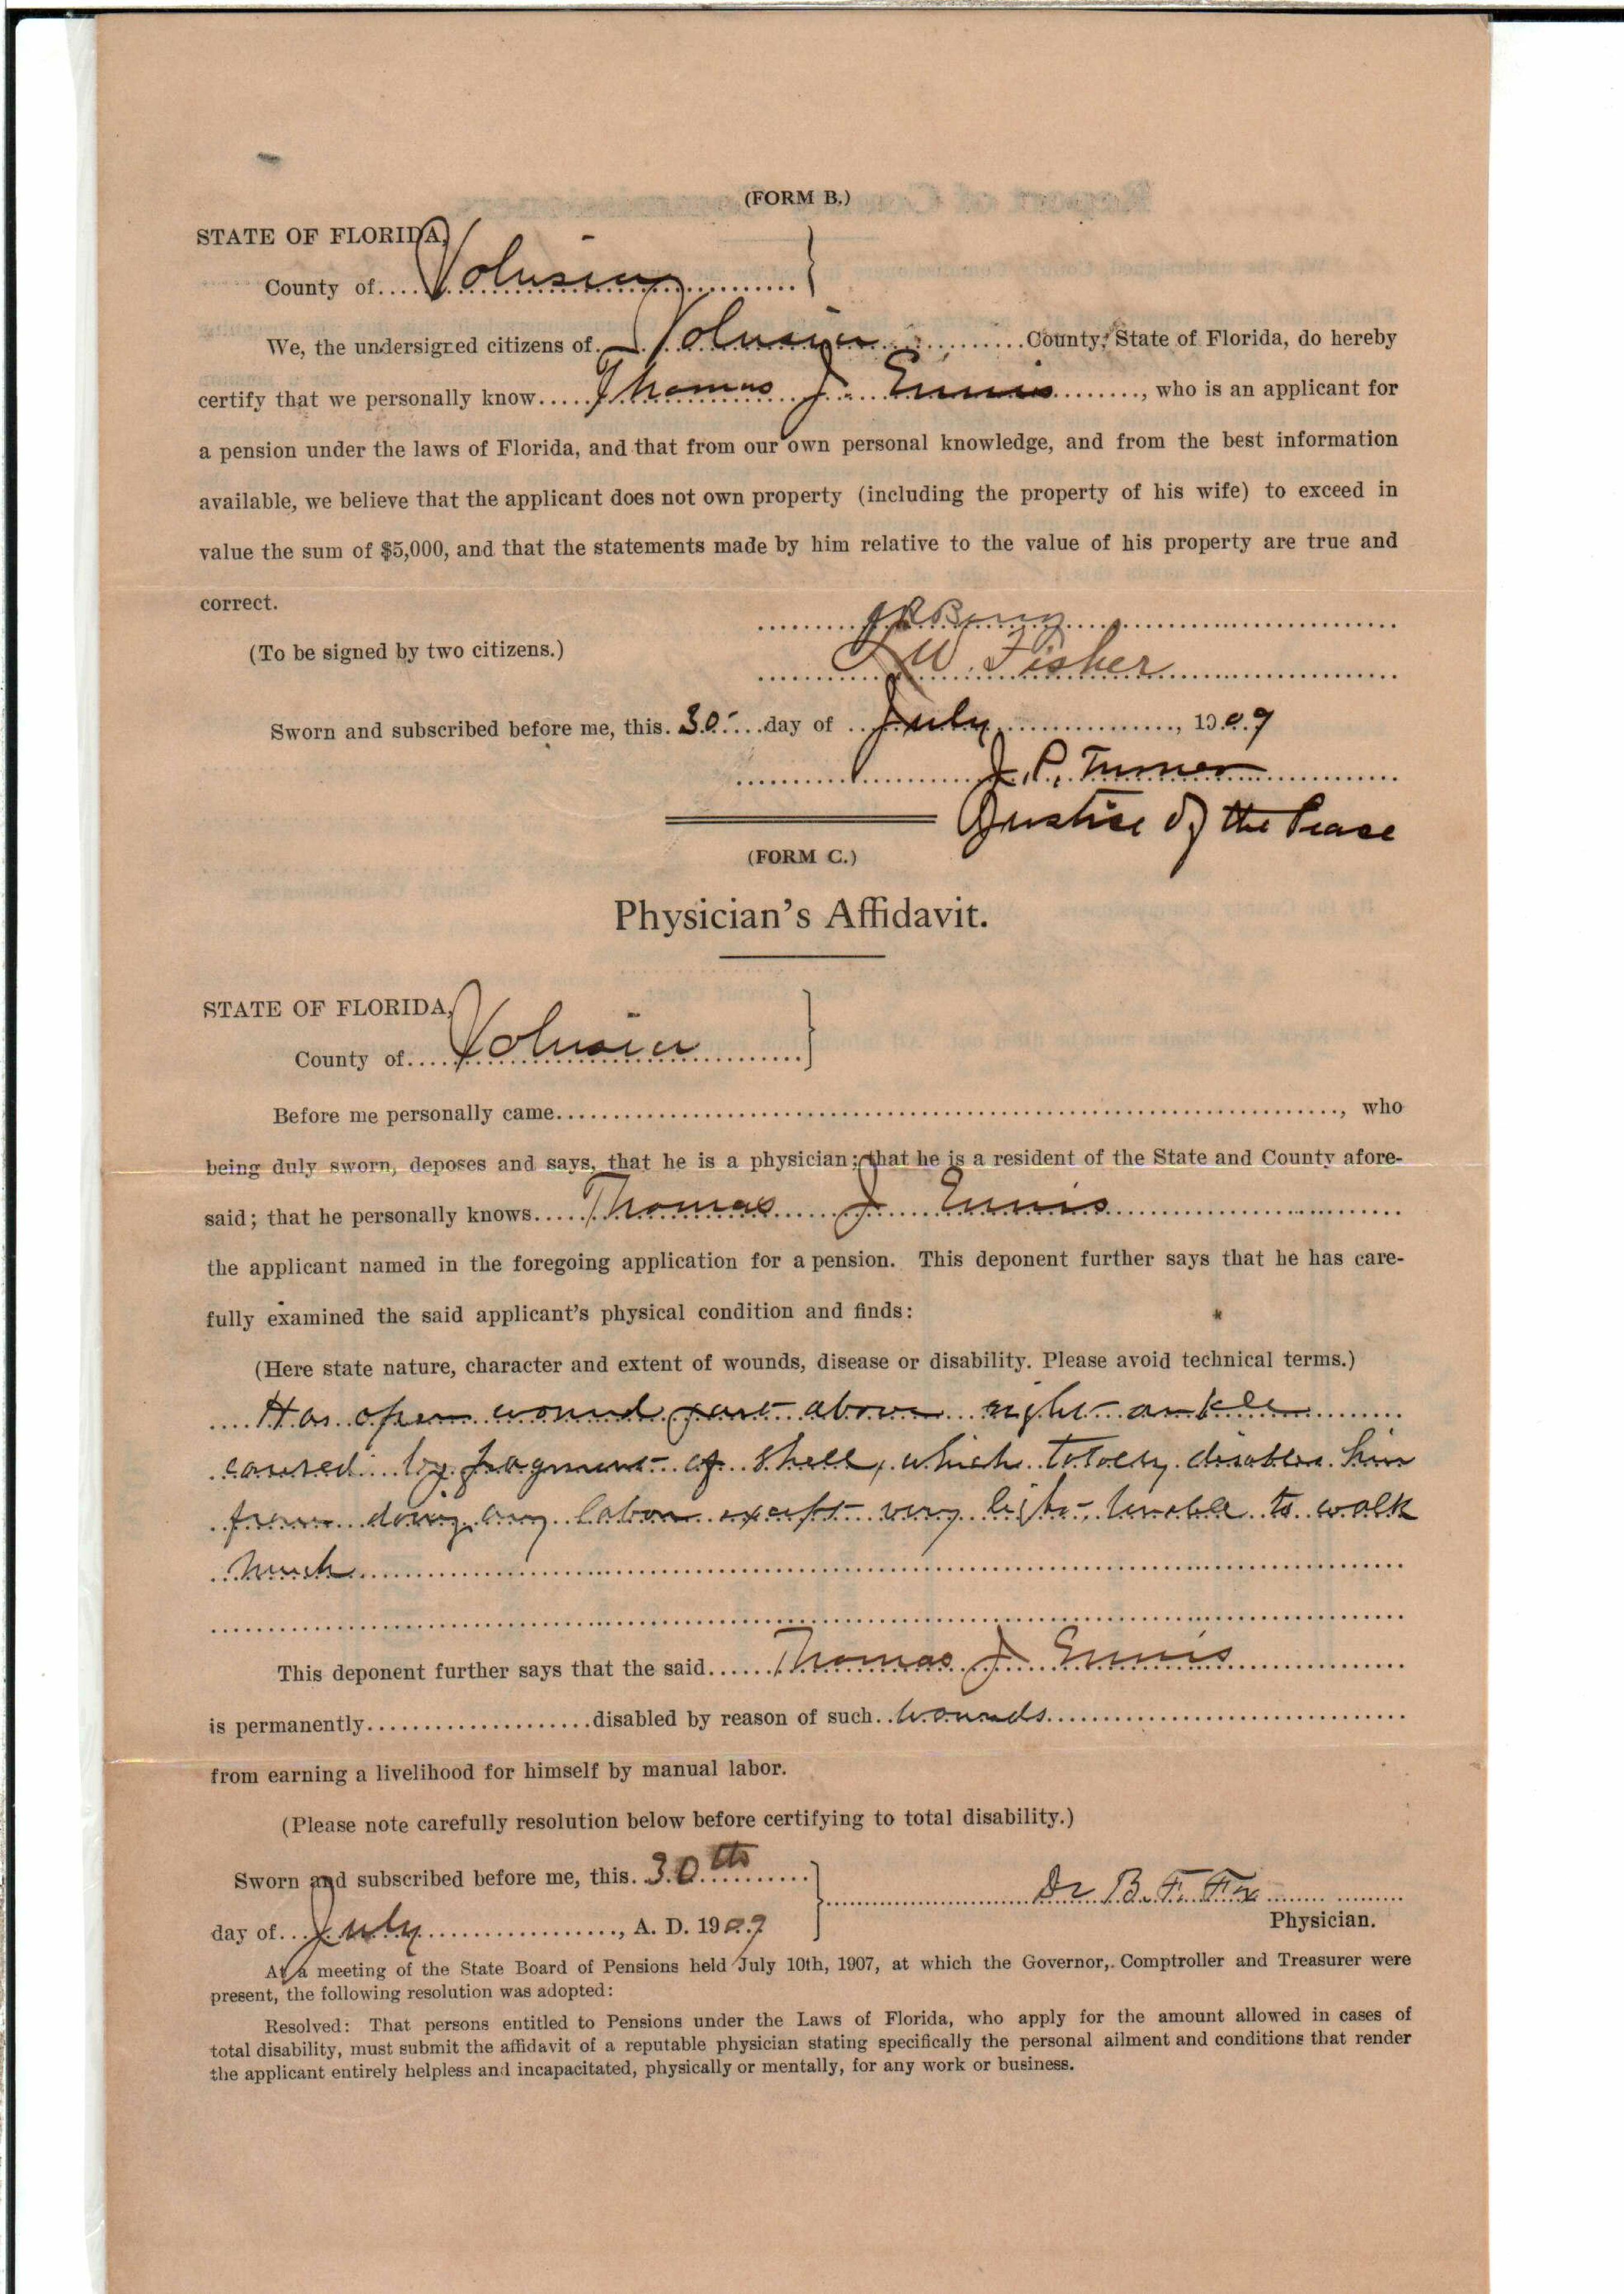 (FORM B.)
STATE OF FLORIDA,
County of Volusia
We, the undersigned citizens of Volusia County, State of Florida, do hereby
certify that we personally know Thomas J. Ennis, who is an applicant for
a pension under the laws of Florida, and that from our own personal knowledge, and from the best information
available, we believe that the applicant does not own property (including the property of his wife) to exceed in
value the sum of $5,000, and that the statements made by him relative to the value of his property are true and
correct.
(To be signed by two citizens.)
W. Fisher
Sworn and subscribed before me, this 30 day of July, 1909
J. P. Turner
Justice of the Peace
(FORM C.)
Physician's Affidavit.
STATE OF FLORIDA,
County of Volusia
Before me personally came, who
being duly sworn, deposes and says, that he is a physician; that he is a resident of the State and County afore-
said; that he personally knows Thomas J Ennis
the applicant named in the foregoing application for a pension. This deponent further says that he has care-
fully examined the said applicant's physical condition and finds:
(Here state nature, character and extent of wounds, disease or disability. Please avoid technical terms.)
Has open wound just above right ankle
caused by fragment of shell, which totally disables him
from doing any labor except very light, unable to walk
much
This deponent further says that the said Thomas J Ennis
is permanently disabled by reason of such wounds
from earning a livelihood for himself by manual labor.
(Please note carefully resolution below before certifying to total disability.)
Sworn and subscribed before me, this 30th
day of July, A. D. 1909
Dr B. F. Fox
Physician.
At a meeting of the State Board of Pensions held July 10th, 1907, at which the Governor, Comptroller and Treasurer were
present, the following resolution was adopted:
Resolved: That persons entitled to Pensions under the Laws of Florida, who apply for the amount allowed in cases of
total disability, must submit the affidavit of a reputable physician stating specifically the personal ailment and conditions that render
the applicant entirely helpless and incapacitated, physically or mentally, for any work or business.